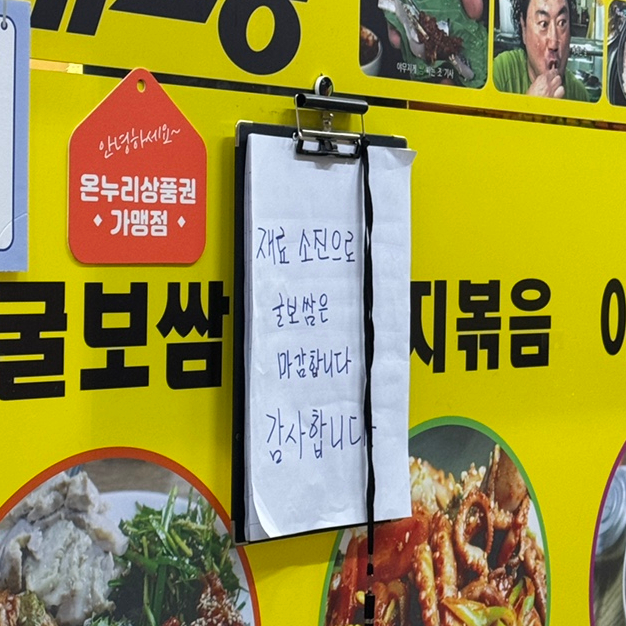 안녕하세요~
온누리상품권
가맹점
재료 소진으로
굴보쌈은
마감합니다
감사합니다
굴보쌈
지볶음